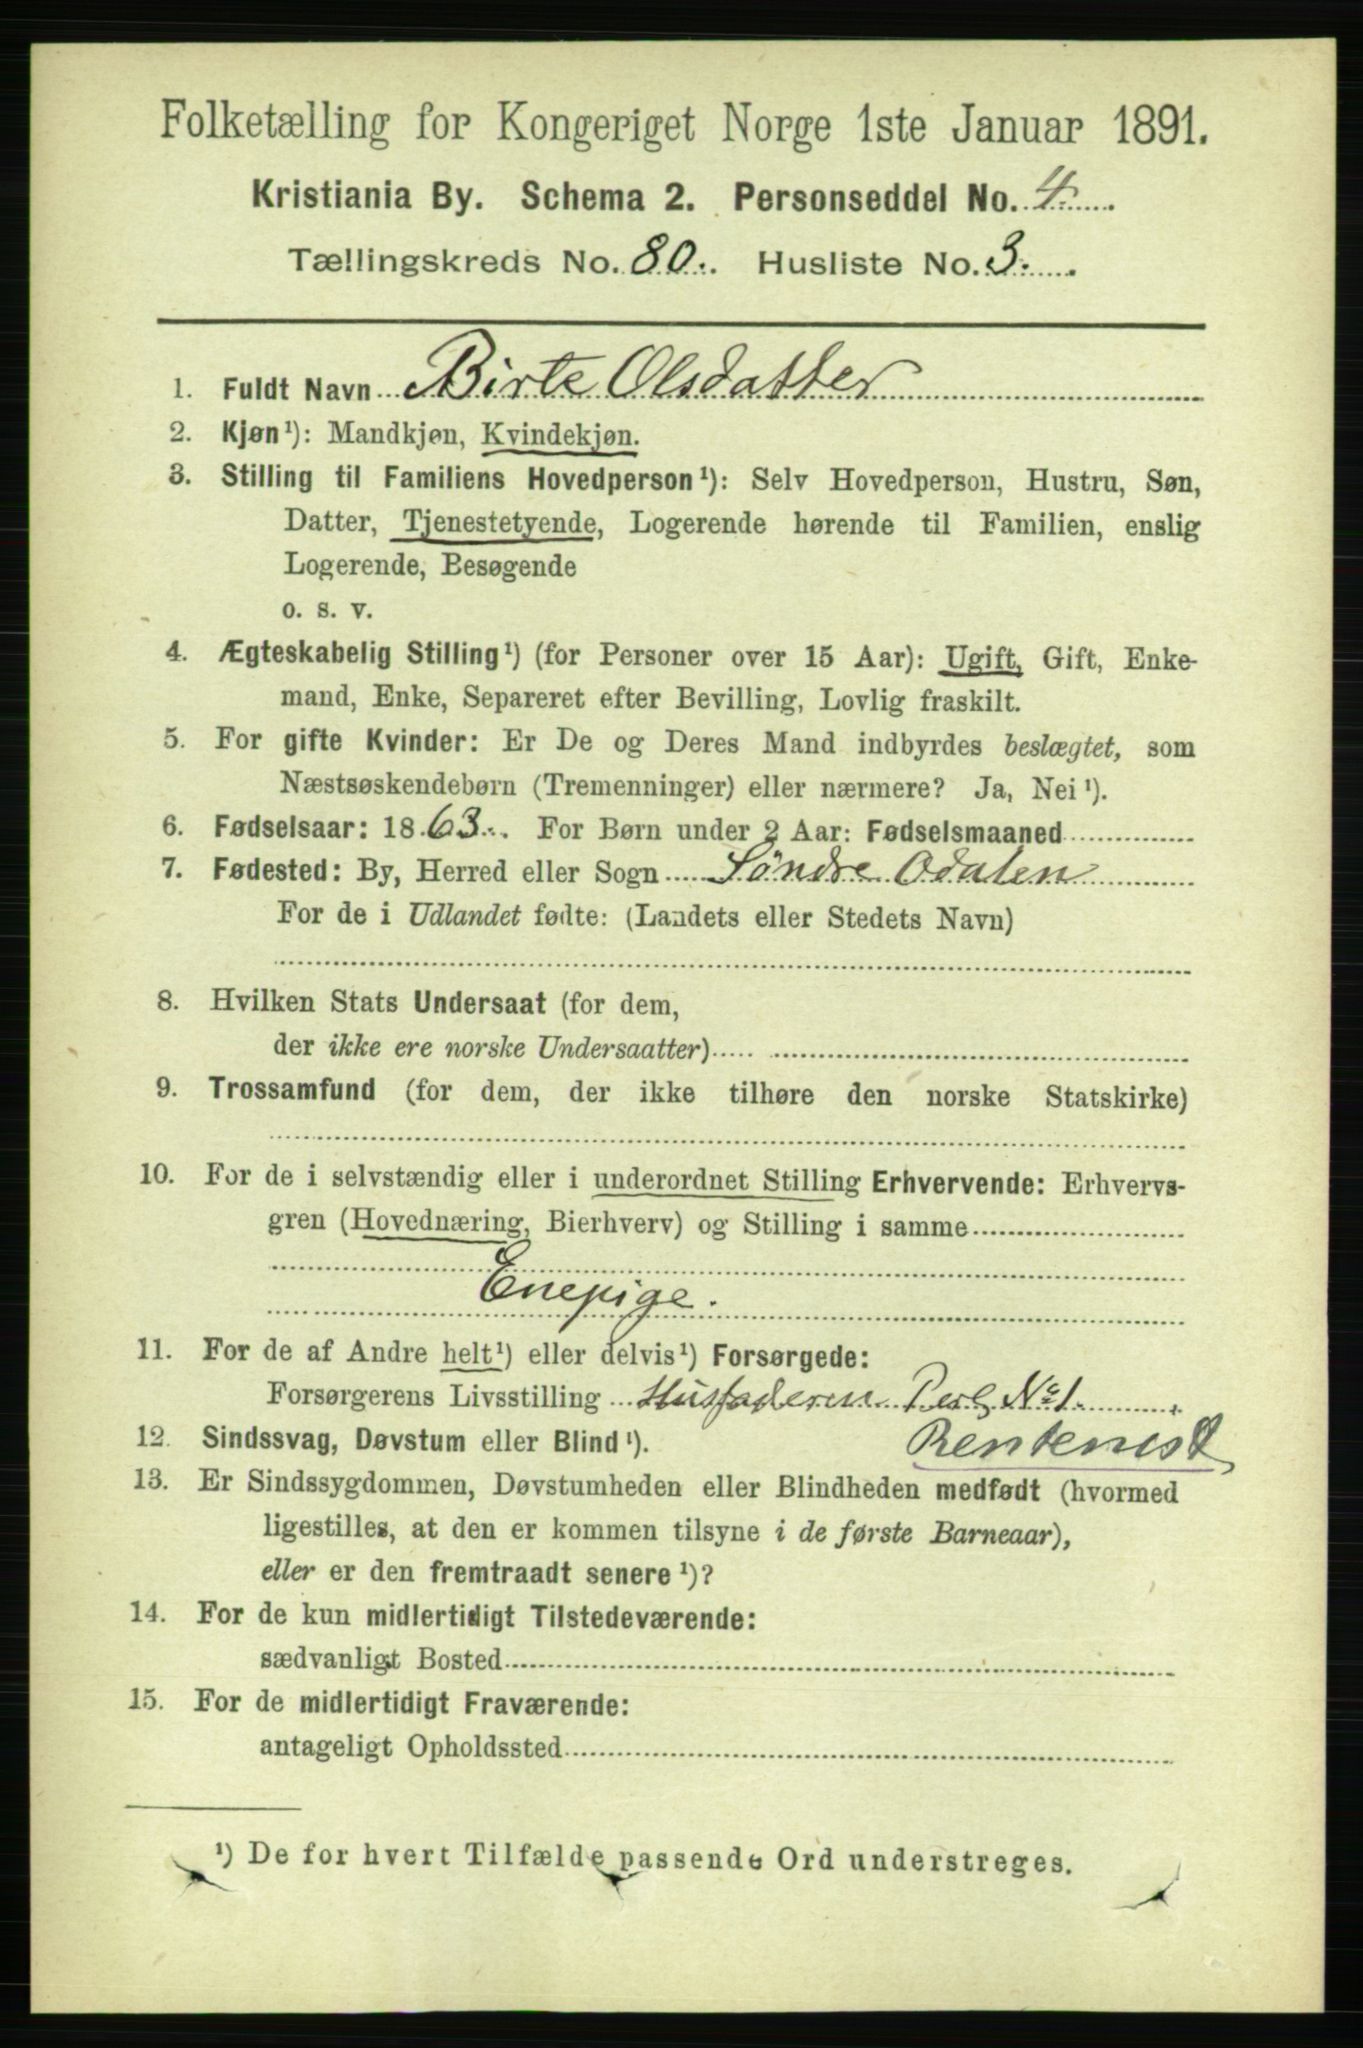 Folketælling for Kongeriget Norge 1ste Januar 1891.
Kristiania By. Schema 2. Personseddel No. 4
Tællingskreds No. 80. Husliste No. 3.
1. Fuldt Navn Birte Olsdatter
2. Kjøn¹): Mandkjøn, Kvindekjøn.
3. Stilling til Familiens Hovedperson¹): Selv Hovedperson, Hustru, Søn,
Datter, Tjenestetyende, Logerende hørende til Familien, enslig
Logerende, Besøgende
o. s. v.
4. Ægteskabelig Stilling¹) (for Personer over 15 Aar): Ugift, Gift, Enke-
mand, Enke, Separeret efter Bevilling, Lovlig fraskilt.
5. For gifte Kvinder: Er De og Deres Mand indbyrdes beslægtet, som
Næstsøskendebørn (Tremenninger) eller nærmere? Ja, Nei¹).
6. Fødselsaar: 1863. For Børn under 2 Aar: Fødselsmaaned
7. Fødested: By, Herred eller Sogn Söndre Odalen
For de i Udlandet fødte: (Landets eller Stedets Navn)
8. Hvilken Stats Undersaat (for dem,
der ikke ere norske Undersaatter)
9. Trossamfund (for dem, der ikke tilhøre den norske Statskirke)
10. For de i selvstændig eller i underordnet Stilling Erhvervende: Erhvervs-
gren (Hovednæring, Bierhverv) og Stilling i samme
Enepige.
11. For de af Andre helt¹) eller delvis¹) Forsørgede:
Forsørgerens Livsstilling Husfaderen Pers. No 1.
12. Sindssvag, Døvstum eller Blind¹). Rentenist
13. Er Sindssygdommen, Døvstumheden eller Blindheden medfødt (hvormed
ligestilles, at den er kommen tilsyne i de første Barneaar),
eller er den fremtraadt senere¹)?
14. For de kun midlertidigt Tilstedeværende:
sædvanligt Bosted
15. For de midlertidigt Fraværende:
antageligt Opholdssted
¹) De for hvert Tilfælde passende Ord understreges.